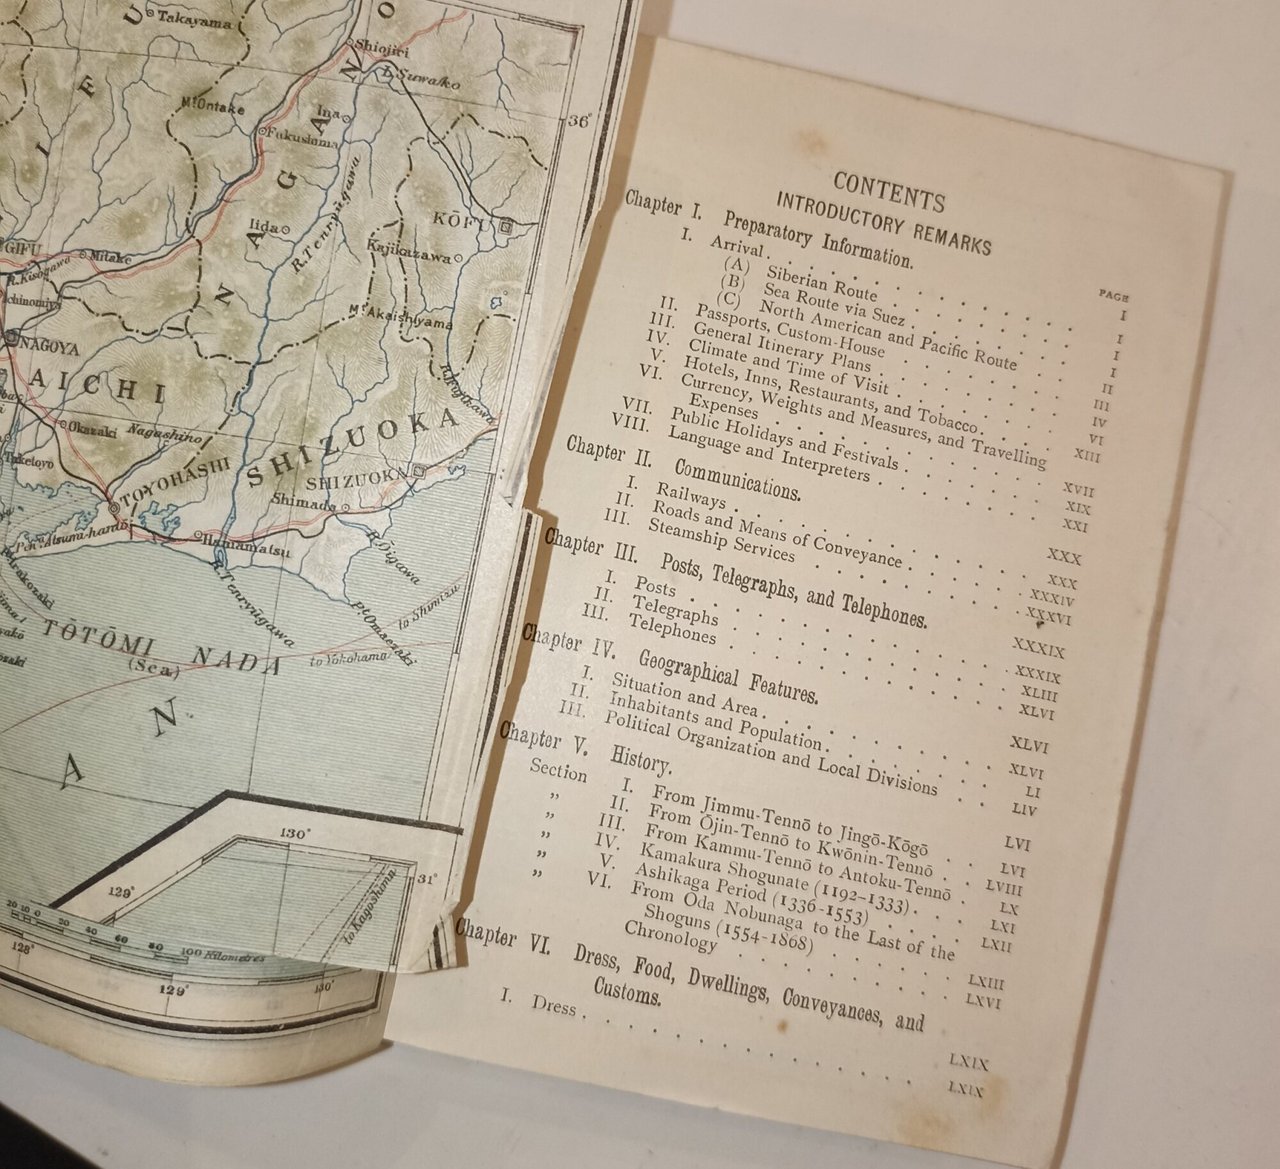 Takayama
U
O
Shiojiri
L. Suwa-ko
F
N
Mt Ontake
Ina
36°
Fukushima
A
I
G
R. Tenryūgawa
KŌFU
Iida
A
Kajikazawa
GIFU
Mitake
R. Kisogawa
N
Mt Akaishiyama
NAGOYA
AICHI
R. Fujikawa
Okazaki
Nagashino
SHIZUOKA
Taketoyo
TOYOHASHI
SHIZUOKA
Shimada
Hamamatsu
R. Ōigawa
R. Tenryūgawa
Pt. Omaezaki
to Shimizu
TŌTŌMI NADA
(Sea)
to Yokohama
N
A
130°
129°
31°
to Kagoshima
20 10 0 20 40 60 80 100 Kilometres
128°
129°
130°
CONTENTS
INTRODUCTORY REMARKS
PAGE
Chapter I. Preparatory Information. I
I. Arrival . . . . . . I
(A) Siberian Route . . . . . . I
(B) Sea Route via Suez . . . . . . I
(C) North American and Pacific Route . . . II
II. Passports, Custom-House . . . . . . III
III. General Itinerary Plans . . . . . . IV
IV. Climate and Time of Visit . . . . . . VI
V. Hotels, Inns, Restaurants, and Tobacco . . . . XIII
VI. Currency, Weights and Measures, and Travelling
Expenses . . . . . . XVII
VII. Public Holidays and Festivals . . . . . . XIX
VIII. Language and Interpreters . . . . . . XXI
Chapter II. Communications. XXX
I. Railways . . . . . . XXX
II. Roads and Means of Conveyance . . . . . . XXXIV
III. Steamship Services . . . . . . XXXVI
Chapter III. Posts, Telegraphs, and Telephones. XXXIX
I. Posts . . . . . . XXXIX
II. Telegraphs . . . . . . XLIII
III. Telephones . . . . . . XLVI
Chapter IV. Geographical Features. XLVI
I. Situation and Area . . . . . . XLVI
II. Inhabitants and Population . . . . . . LI
III. Political Organization and Local Divisions . . LIV
Chapter V. History. LVI
Section I. From Jimmu-Tennō to Jingō-Kōgō . . LVI
„ II. From Ōjin-Tennō to Kwōnin-Tennō . . LVIII
„ III. From Kammu-Tennō to Antoku-Tennō . LX
„ IV. Kamakura Shogunate (1192-1333) . . . LXI
„ V. Ashikaga Period (1336-1553) . . . . LXII
„ VI. From Oda Nobunaga to the Last of the
Shoguns (1554-1868) . . . . . LXIII
Chronology . . . . . . LXVI
Chapter VI. Dress, Food, Dwellings, Conveyances, and
Customs. LXIX
I. Dress . . . . . . LXIX